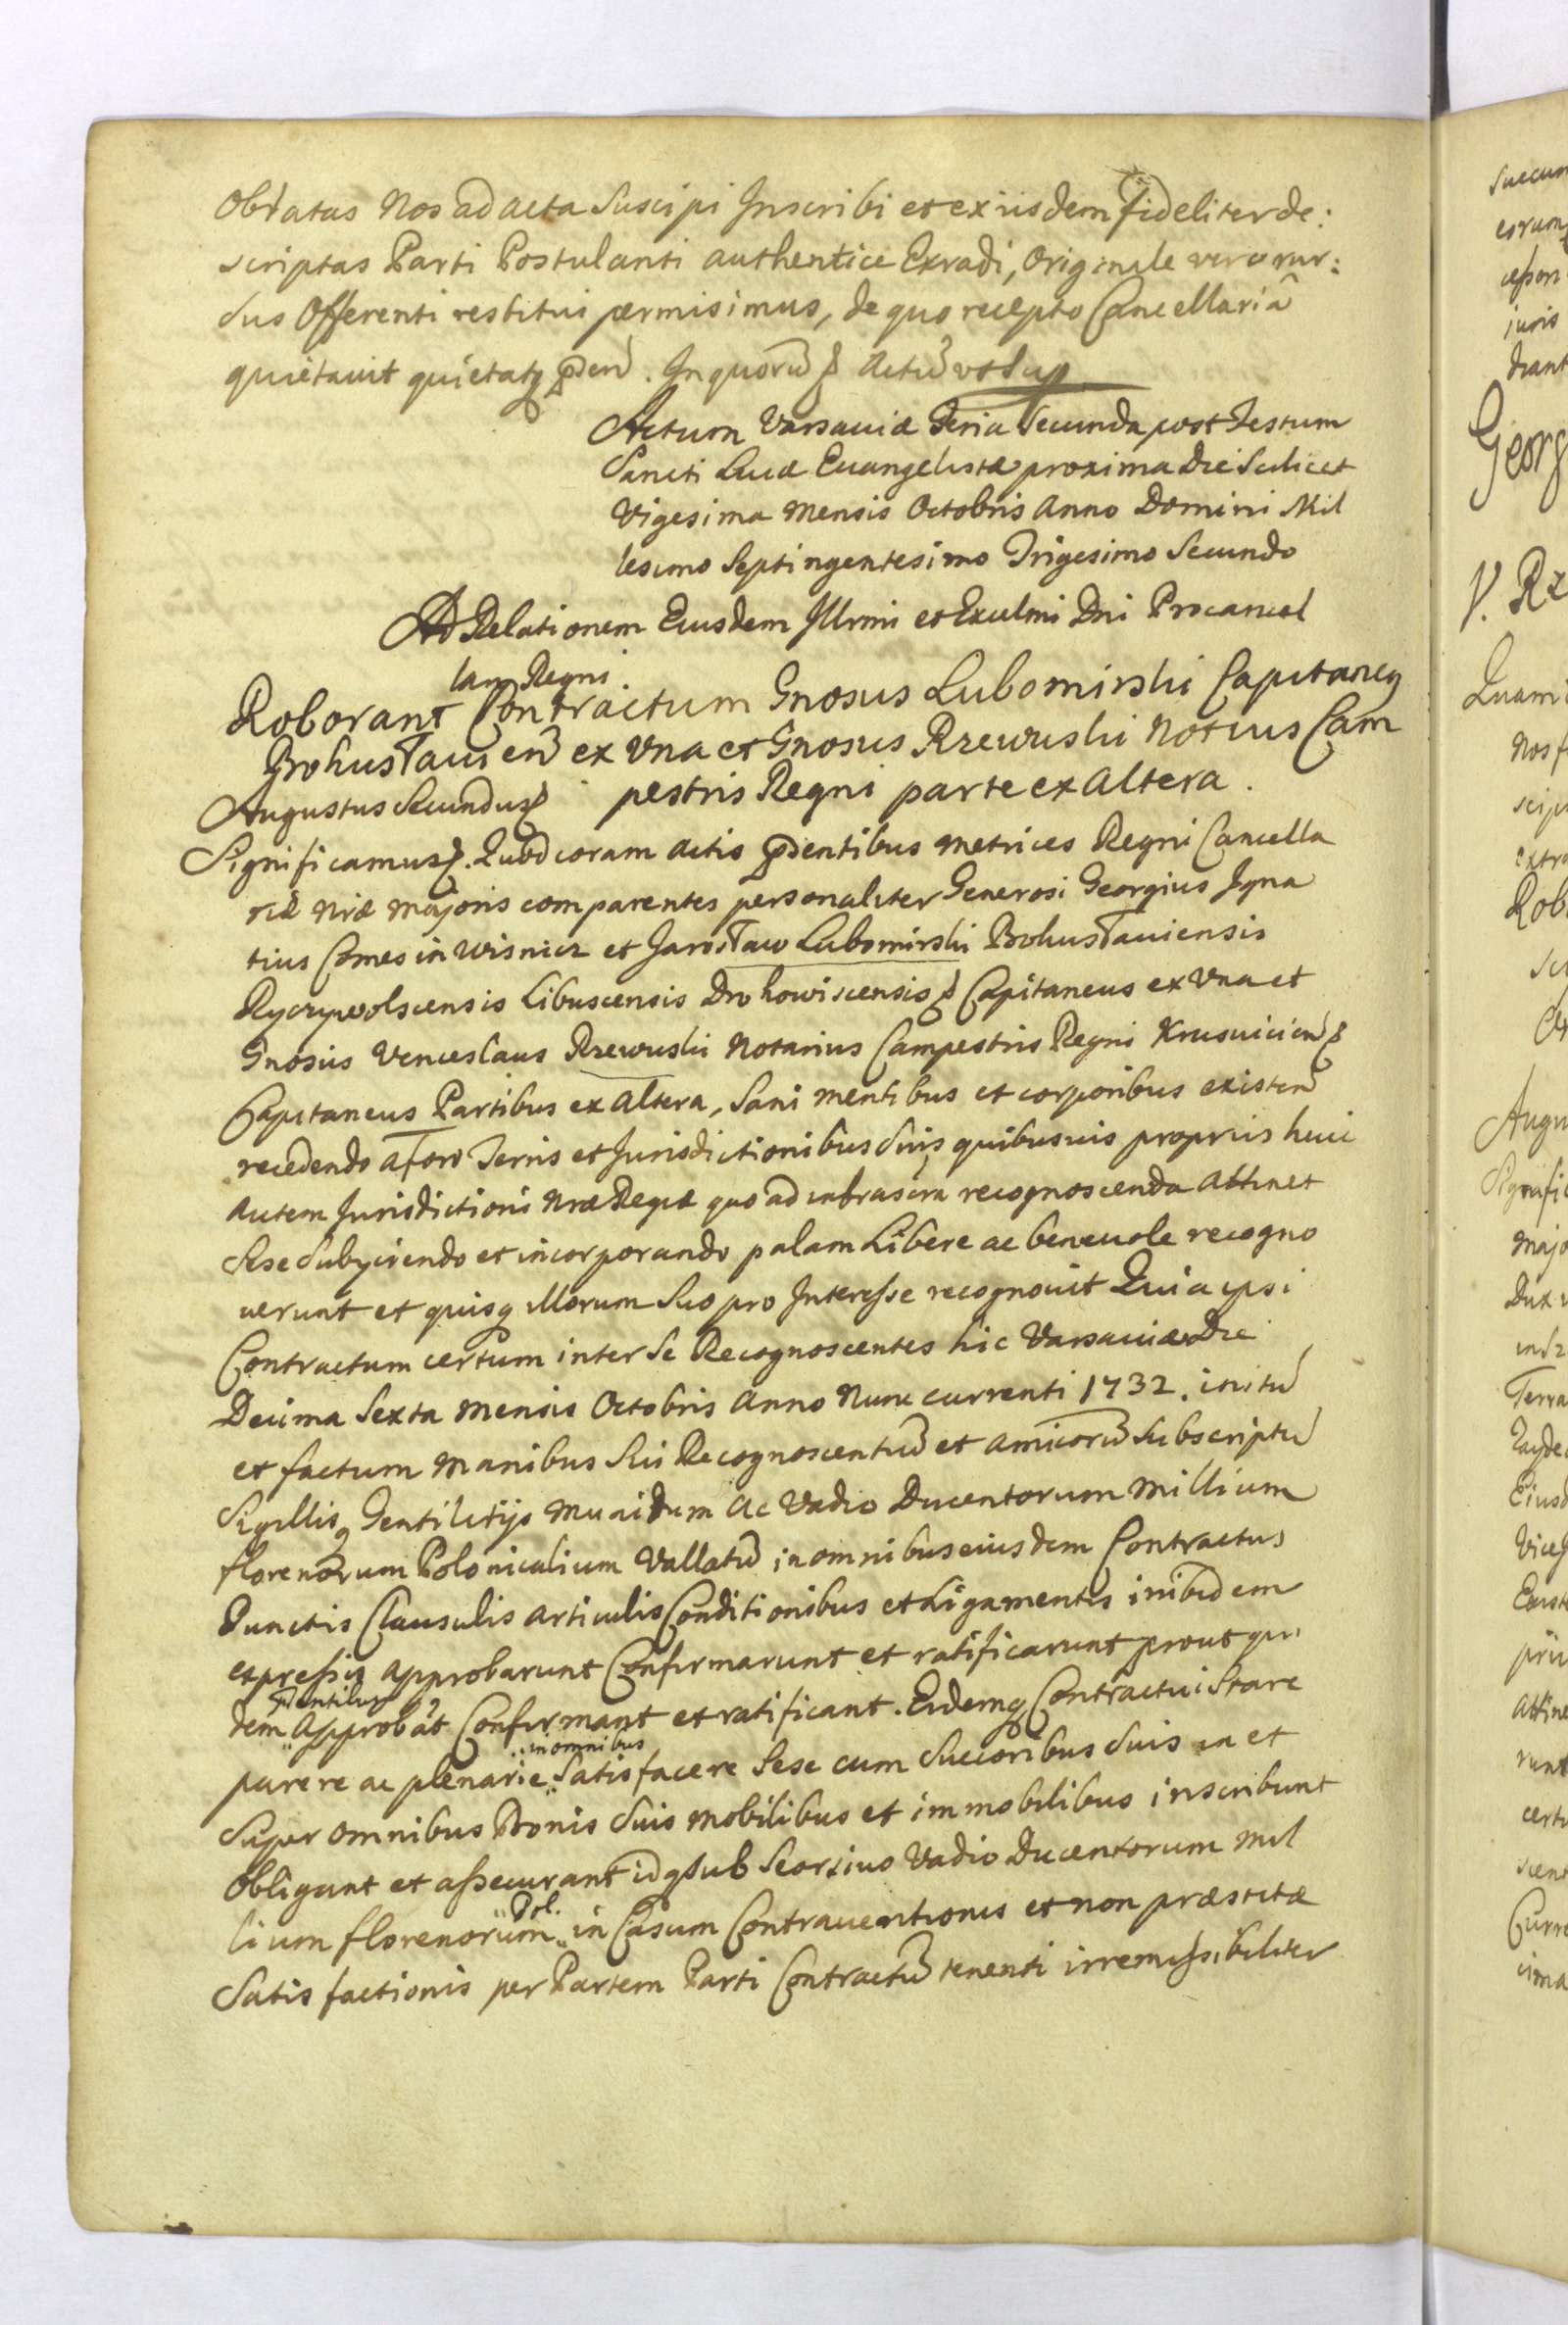 Oblatas Nos ad acta Suscipi Inscribi et ex iisdem fideliter de:
scriptas Parti Postulanti authentice Extradi, Originale vero rur:
sus Offerenti restitui permisimus, de quo recepto Cancellariã
quietavit quietatq pñteñ. In quorũ Actũ vt Sup
Actum Varsaviæ Feria Secunda post Festum
Sancti Lucæ Euangelistæ proxima Die Scilicet
Vigesima Mensis Octobris Anno Domini Mil
lesimo Septingentesimo Trigesimo Secundo
Ad Relationem Eiusdem Illrmi et Exclmi Dni Procancel
larij Regni
Roborant Contractum Gnosus Lubomirski Capitaneq
Bohusłauieñ ex Vna et Gnosus Rzewuski Notrius Cam
pestris Regni parte ex Altera.
Augustus Secundus
Significamus. Quod coram Actis pñtibus Metrices Regni Cancella
riæ Nræ Majoris comparentes personaliter Generosi Georgius Igna
tius Comes in Wisnicz et Jarosław Lubomirski Bohusłauiensis
Ryczywolscensis Libuscensis Drohowiscensis Capitaneus ex Vna et
Gnosus Venceslaus Rzewuski Notarius Campestris Regni Krusuicieñ
Capitaneus Partibus ex Altera, Sani mentibus et corporibus existeñ
recedendo a foro Terris et Jurisdictionibus Suis quibusuis proprijs huic
Autem Jurisdictioni Nræ Regiæ quo ad infrascrm recognoscenda Attinet
Sese Subyciendo et incorporando palam Libere ac beneuole recogno
uerunt et quisq illorum Suo pro Interesse recognouit Quia ipsi
Contractum certum inter Se Recognoscentes hic Varsaviæ Die
Decima Sexta Mensis Octobris Anno Nunc currenti 1732. initũ
et factum Manibus Sui Recognoscentiũ et Amicorũ Subscriptũ
Sigillisq Gentilitijs Munitum Ac Vadio Ducentorum Millium
florenorum Polonicalium Vallatũ in omnibus eiusdem Contractus
Punctis Clausulis Articulis Conditionibus et Ligamentis inibidem
expressis Approbarunt Confirmarunt et ratificarunt prout qui
pñtibus
dem Approbãt Confirmant et ratificant. Eidemq Contractui Stare
in omnibus
parere ac plenarie Satisfacere Sese cum Succoribus Suis in et
Super omnibus Bonis Suis Mobilibus et immobilibus inscribunt
Obligant et assecurant idq Sub Seorsivo Vadio Ducentorum Mil
Pol.
lium florenorum in Casum Contrauentionis et non præstitæ
Satisfactionis per Partem Parti Contractũ tenenti irremissibiliter
Georg
V. Rz
Quam
Nos f
Rob
Augu
Signific
Majo
Dux
Terra
Eiusd
Vice
Attine
runt
certu
scent
Curre